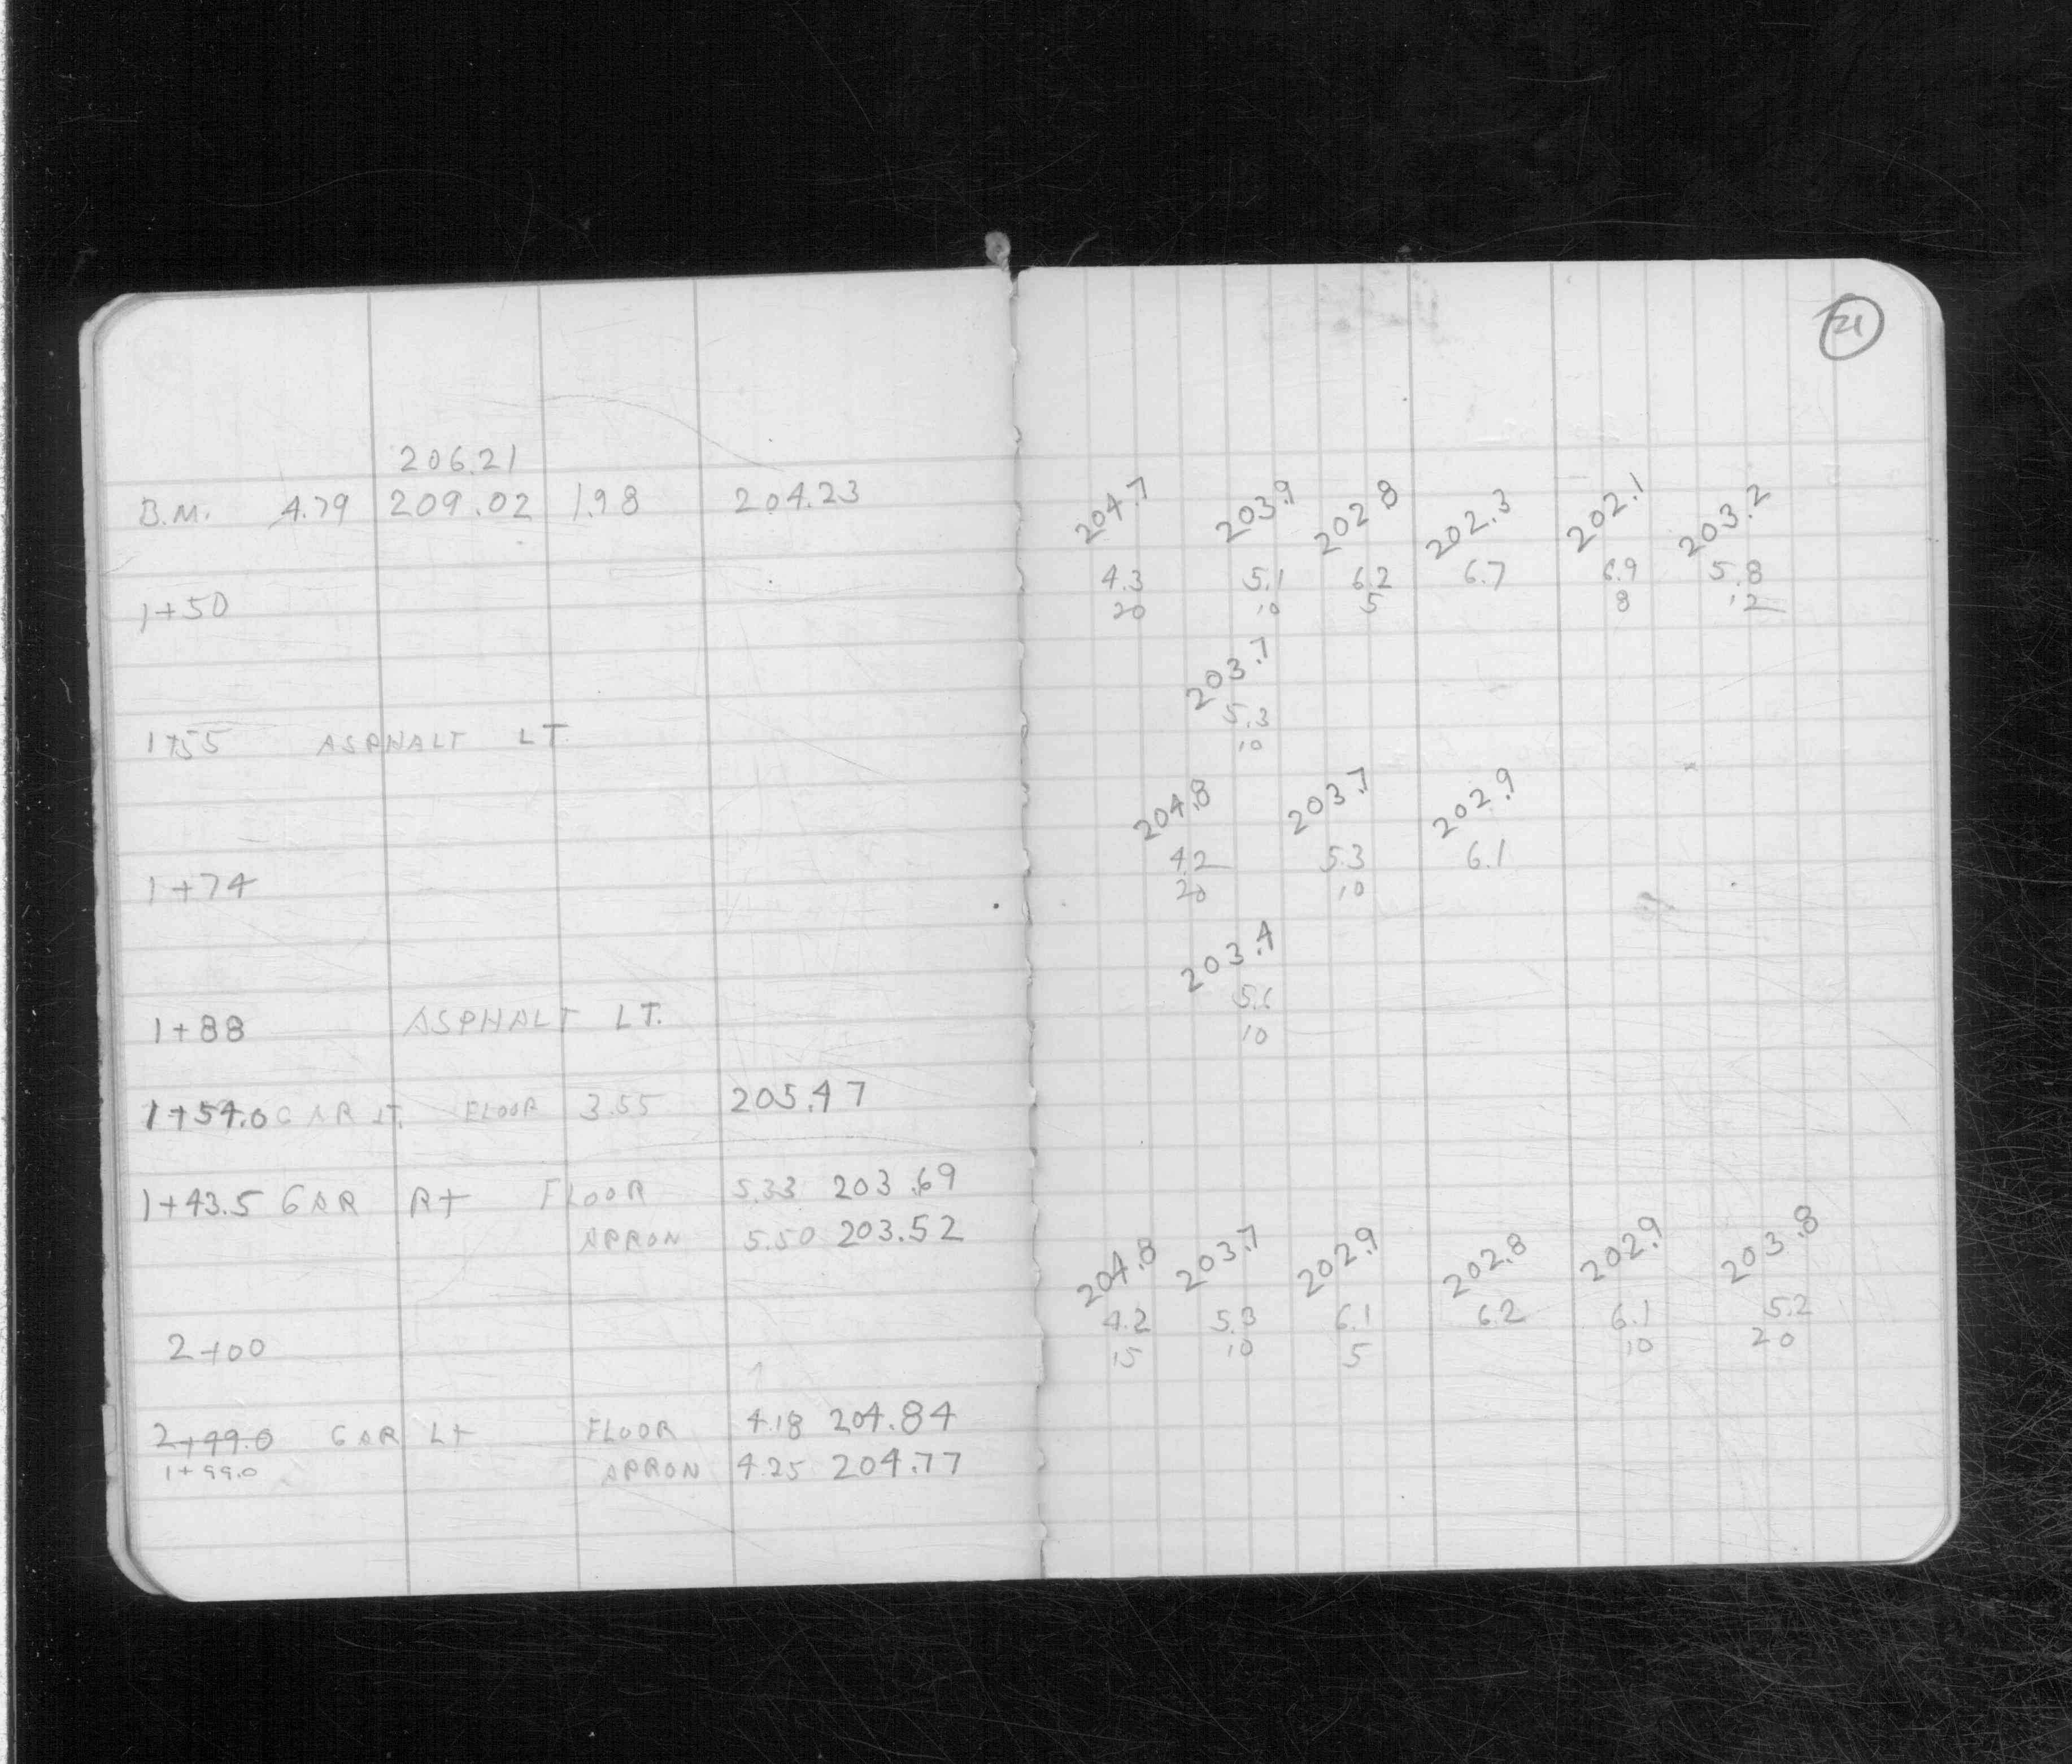 206.21
B.M. 4.79 209.02 1.98 204.23
1+50
1+55 ASPHALT LT.
1+74
1+88 ASPHALT LT.
1+54.0 GAR LT. FLOOR 3.55 205.47
1+43.5 GAR RT FLOOR 5.33 203.69
APRON 5.50 203.52
2+00
2+99.0 GAR LT FLOOR 4.18 204.84
1+99.0 APRON 4.25 204.77
21
204.7 203.9 202.8 202.3 202.1 203.2
4.3 5.1 6.2 6.7 6.9 5.8
20 10 5 8 12
203.7
5.3
10
204.8 203.7 202.9
4.2 5.3 6.1
20 10
203.4
5.6
10
204.8 203.7 202.9 202.8 202.9 203.8
4.2 5.3 6.1 6.2 6.1 5.2
15 10 5 10 20